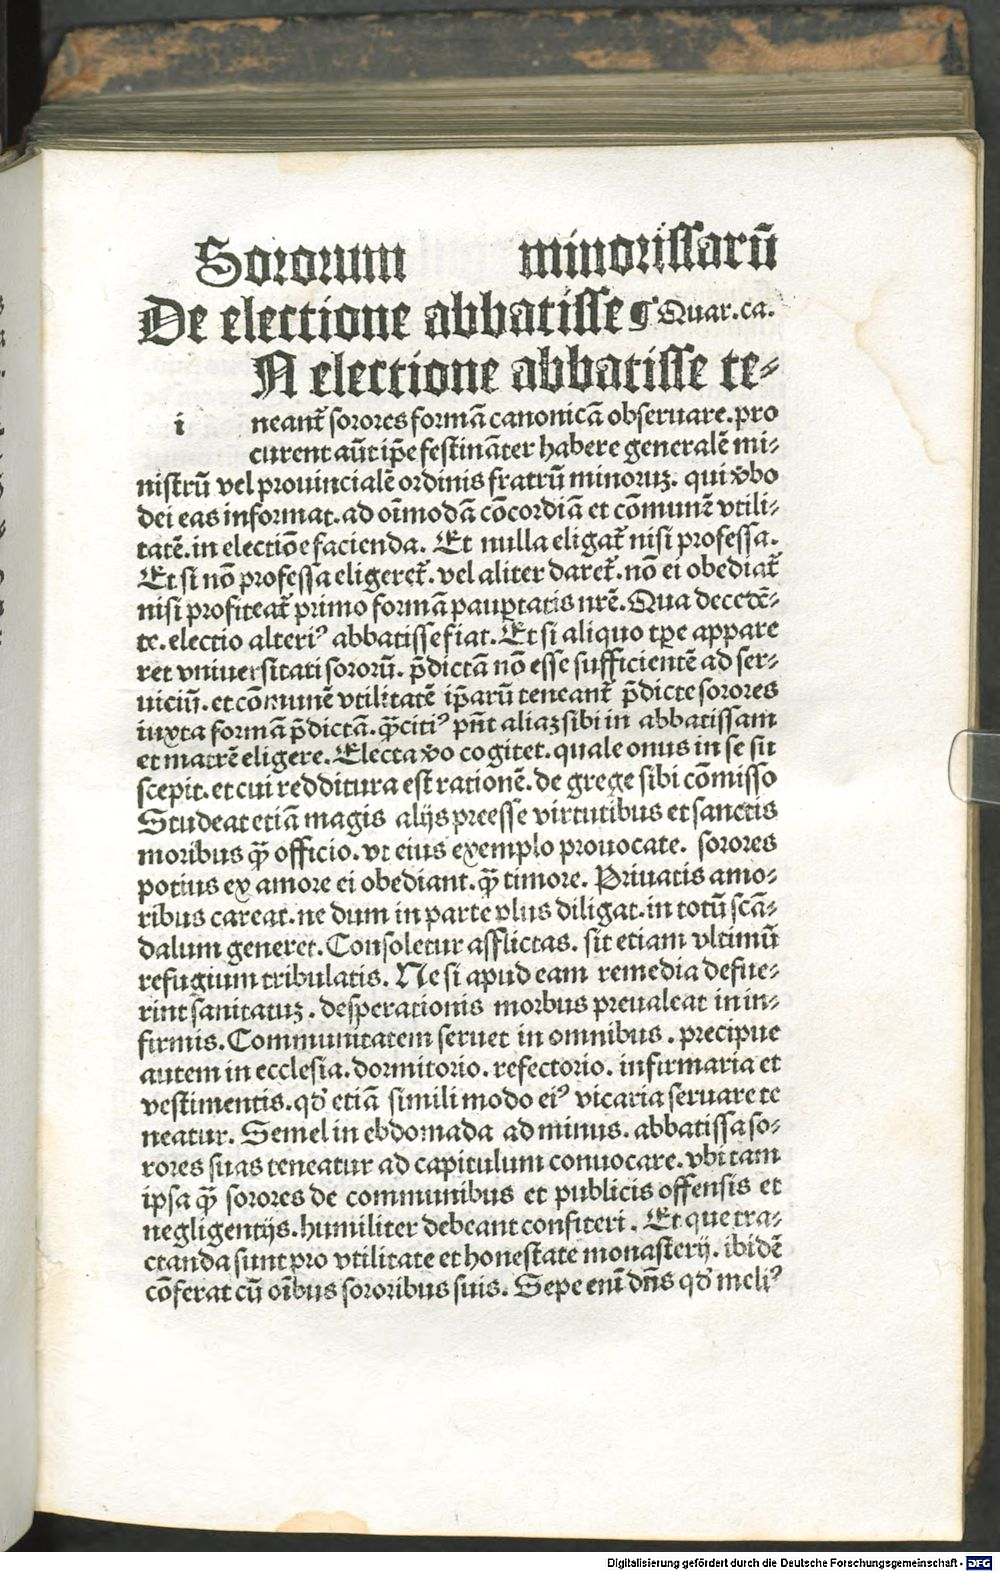 Sororum minorissarū
De electione abbatisse ¶ Quar.ca.
N electione abbatisse te⸗
i neant᷑ sorores formā canonicā obseruare.pro
curent aūt ip̄e festināter habere generalē mi⸗
nistrū vel prouincialē ordinis fratrū minoruꝫ. qui v̄bo
dei eas informat.ad oīmodā cōcordiā et cōmunē vtili⸗
tatē.in electiōe facienda. Et nulla eligat᷑ nisi professa.
Et si nō professa eligeret᷑.vel aliter daret᷑.nō ei obediat᷑
nisi profiteat᷑ primo formā paup̱tatis nr̄e.Qua decedē⸗
te.electio alteriꝰ abbatisse fiat.Et si aliquo tp̄e appare
ret vniuersitati sororū. p̄dictā nō esse sufficientē ad ser⸗
uiciū.et cōmunē vtilitatē ip̄arū teneant᷑ p̄dicte sorores
iuxta formā p̄dictā.q̄ꝫcitiꝰ pn̄t aliaꝫ sibi in abbatissam
et matrē eligere.Electa v̄o cogitet.quale onus in se su
scepit.et cui redditura est rationē.de grege sibi cōmisso
Studeat etiā magis alijs preesse virtutibus et sanctis
moribus q̄ꝫ officio.vt eius exemplo prouocate. sorores
potius ex amore ei obediant.q̄ꝫ timore. Priuatis amo⸗
ribus careat.ne dum in parte plus diligat.in totū scā⸗
dalum generet.Consoletur afflictas. sit etiam vltimū
refugium tribulatis. Ne si apud eam remedia defue⸗
rint sanitatuꝫ. desperationis morbus preualeat in in⸗
firmis.Communitatem seruet in omnibus. precipue
autem in ecclesia.dormitorio.refectorio. infirmaria et
vestimentis.qd̓ etiā simili modo eiꝰ vicaria seruare te
neatur. Semel in ebdomada ad minus. abbatissa so⸗
rores suas teneatur ad capitulum conuocare.vbi tam
ipsa q̄ꝫ sorores de communibus et publicis offensis et
negligentijs.humiliter debeant confiteri. Et que tra⸗
ctanda sunt pro vtilitate et honestate monasterij. ibidē
cōferat cū oībus sororibus suis. Sepe enī dn̄s qd̓ meliꝰ
Digitalisierung gefördert durch die Deutsche Forschungsgemeinschaft - DFG